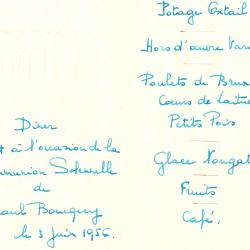 Diner
à l'occasion de la
mmunion Solennelle
de
aul Bourguy
le 3 Juin 1956.
Potage Oxtail
Hors d'œuvre Vari
Poulets de Brux
Cœurs de Laitue
Petits Pois
Glace Nougat
Fruits
Café.